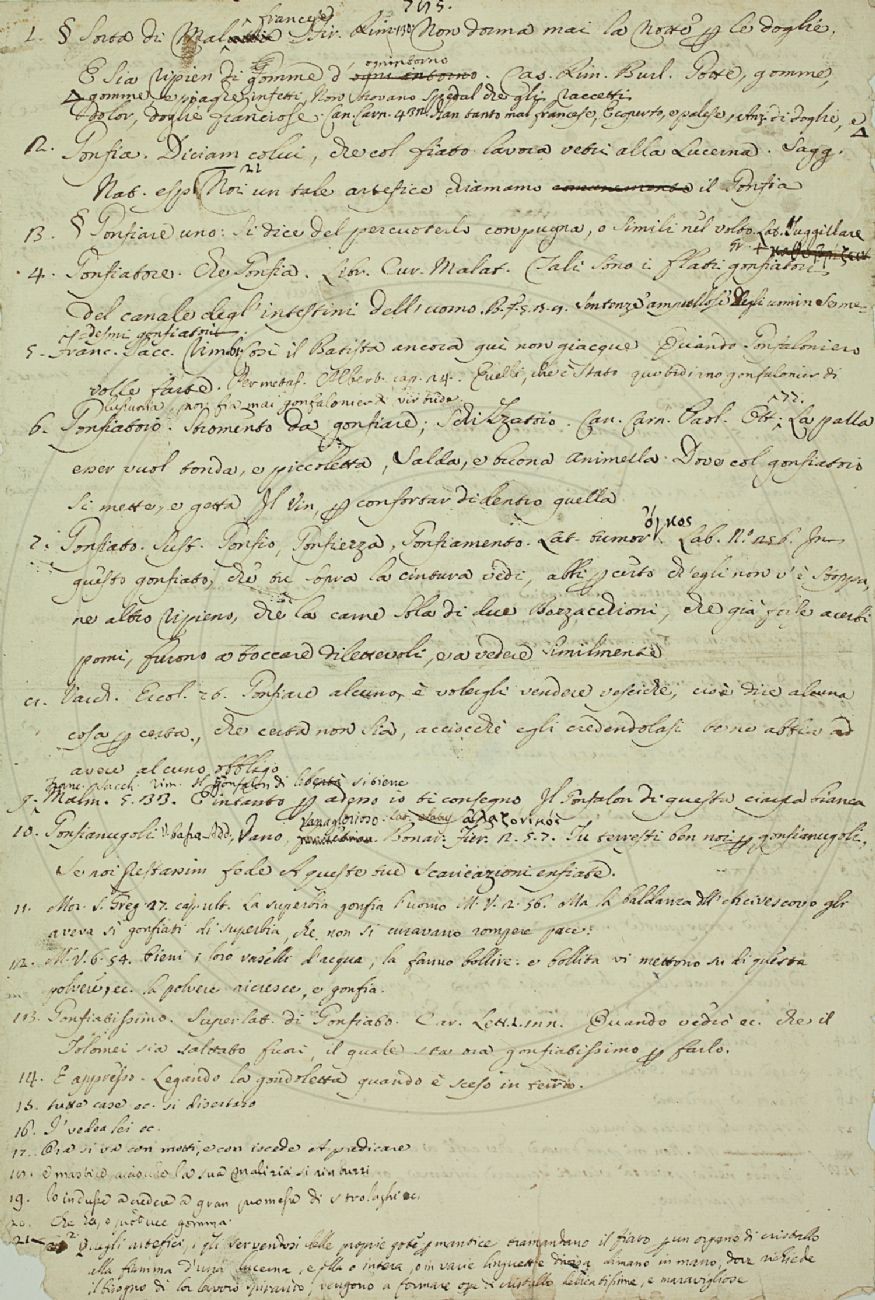 795.
1. § Sorta di Mal francese. Bir. Rim. Non dorma mai la Notte p le doglie,
E sia ripien di gomme d' ognintorno. Cas. Rim. Burl. Gotte, gomme,
gomme, e piaghe infetti, Non trovano Spedal che gli raccetti
Dolor, doglie franciose. Can. Carn. 43 mal francese, Ecoperto, e palese, di doglie, e
2. Gonfia. Diciam colui, che col fiato lavora vetri alla Lucerna. Sagg.
Nat. esp. Noi un tale artefice chiamamo il Gonfia
3. § Gonfiare uno: Si dice del percuoterlo con pugna, o simili nel volto. Lat. Suggillare
4. Gonfiatore. Che Gonfia. Libr. Cur. Malat. Tali sono i flati gonfiatori
del canale degl'intestini dell'uomo. Sentenze ampullose degli uomini
gonfiatori.
5. Franc. Sacc. Rim. il Batista ancora qui non giacque Quando Gonfaloniero
volle farte. Per metaf. Albert. cap. 24. Quelli, che è stato gonfalonier di
lussuria, non fia mai gonfalonier di virtude
6. Gonfiatoio. Stromento da gonfiare; Schizzatoio. Can. Carn. Paol. Ott. 77. La palla
esser vuol tonda, e piccoletta, Salda, e buona animella. Dove col gonfiatoio
si mette, e getta Il vin, p confortar di dentro quella
7. Gonfiato. Sust. Gonfio, Gonfiezza, Gonfiamento. Lat. tumor ὄγκος. Lab. N.° 256. In
questo gonfiato, che tu sopra la cintura vedi, abbi p certo ch'egli non v'è stoppa,
ne altro ripieno, che la carne sola di due bozzacchioni, che già forse acerbi
pomi, furono a toccare dilettevoli, e a vedere similmente
Varch. Ercol. 76. Gonfiare alcuno, è volergli vendere vesciche, cioè dire alcuna
cosa p certa, che certa non sia, acciocchè egli credendolasi te ne abbia ad
avere alcuno obbligo
Franc. Sacch. rim. Il gonfalon di libertà si tiene
9. Malm. 5. 33. E intanto p adesso io ti consegno Il Gonfalon di questa ciarpa bianca
10. Gonfianugoli. Add. Vano, vanaglorioso. Lat. ἀλαζονικός Bonar. Fier. 2. 5. 7. Tu ben noi p gonfianugoli,
Se noi prestassim fede A queste tue Scaricazioni enfiate.
11. Mor. S. Greg. 27. La superbia gonfia l'uomo M. V. 2. 56. Ma la baldanza dell'Arcivescovo gli
aveva sì gonfiati di superbia, che non si curavano rompere pace.
12. M. V. 6. 54. Pieni i loro vaselli d'acqua, la fanno bollire: e bollita vi mettono su di questa
polvere, ec. la polvere ricresce, e gonfia.
13. Gonfiatissimo. Superlat. di Gonfiato. Car. Lett. Quando vedrò ec. che il
Tolomei sia saltato fuori, il quale sta ora gonfiatissimo p farlo.
14. E appresso. Legando la gondoletta quando è sceso in terra.
15. tutte case ec. si disertaro
16. I' vedea lei ec.
17. Ora si va con motti, e con iscede A predicare
la sua malizia si rinturri
19. lo indusse a credere a gran promesse di strolaghi ec.
20. Che produce gomma.
21. Quegli artefici, i quali servendosi delle proprie gote p mantice tramandano il fiato p un organo di cristallo
alla fiamma d'una lucerna, e quella o intera, o in varie linguette divisa dimano in mano, dove richiede
il bisogno di lor lavoro spirando, vengono a formare opre di cristallo leggerissime, e maravigliose